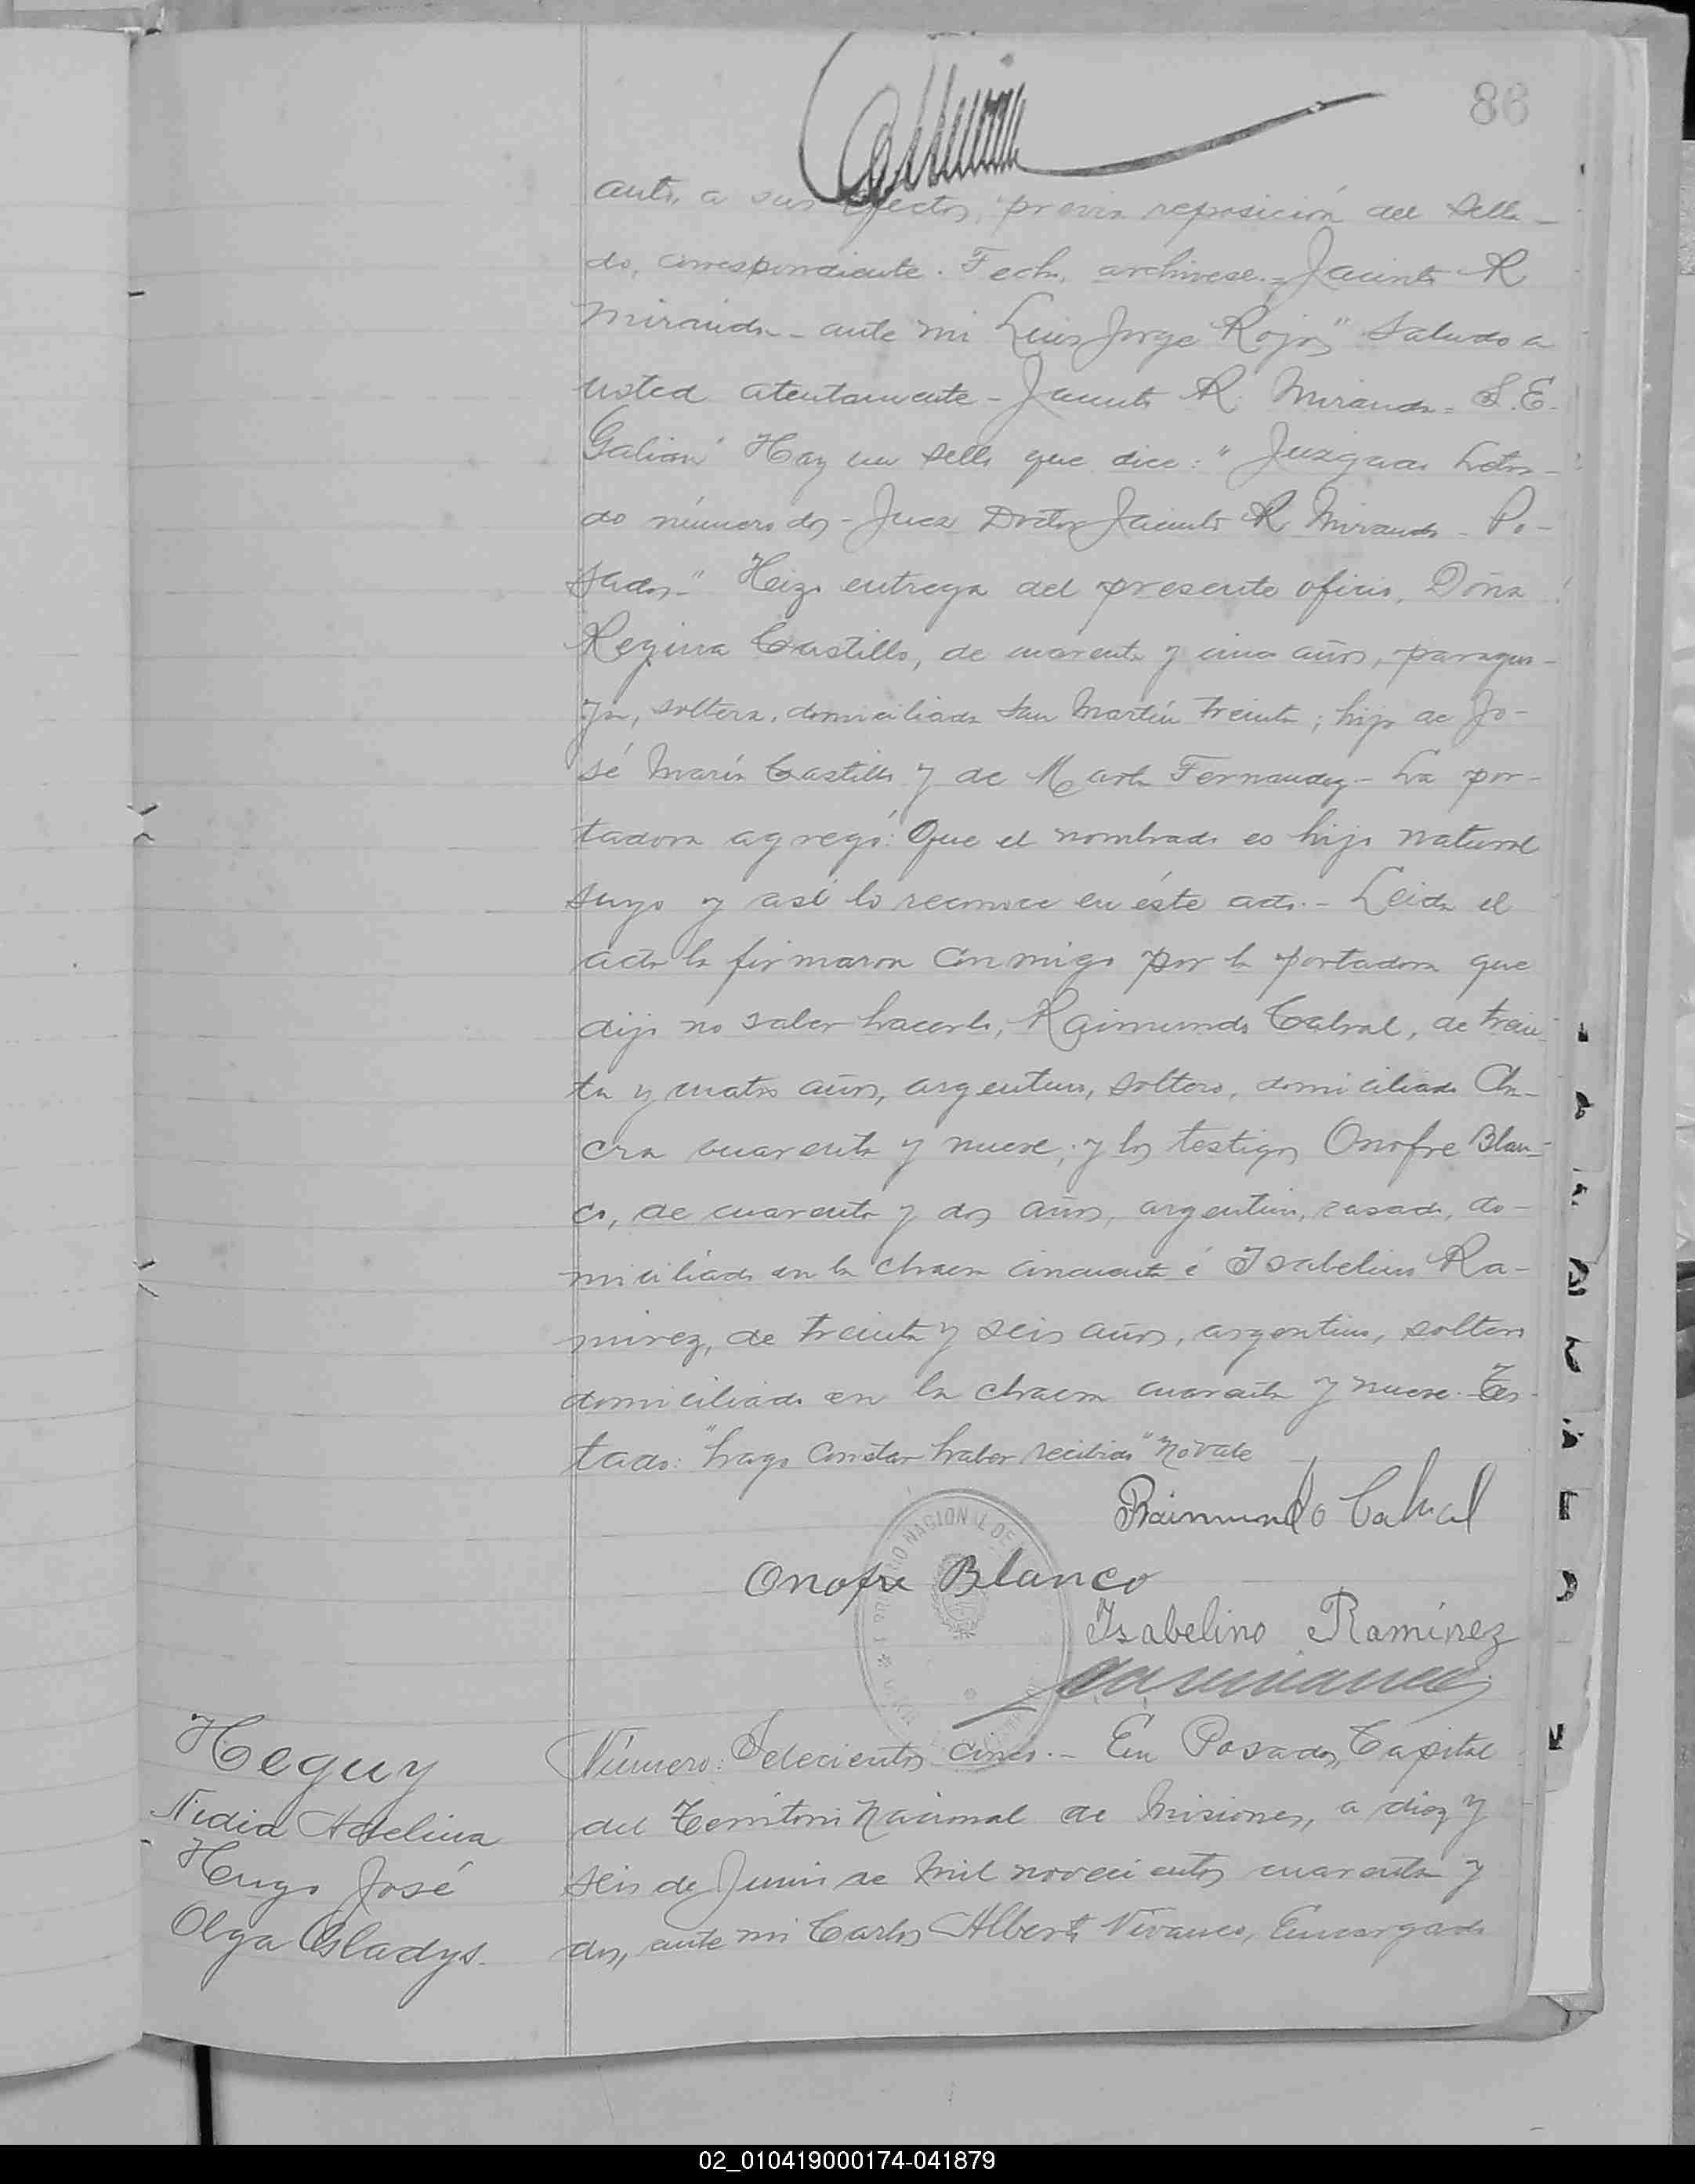 86
auto, a sus efectos, previa reposición del sella-
do, correspondiente. Fecho, archivese.- Jacinto R
Miranda - ante mi Luis Jorge Rojas" Saludo a
usted atentamente - Jacinto R. Miranda - S.E.
Galian" Hay un sello que dice: "Juzgado Letra-
do número dos - Juez Doctor Jacinto R Miranda - Po-
sadas-" Hizo entrega del presente oficio, Doña
Regina Castillo, de cuarenta y cinco años, paragua-
ya, soltera, domiciliada San Martín treinta; hija de Jo-
sé María Castillo y de Marta Fernandez - La por-
tadora agregó: Que el nombrado es hijo natural
suyo y así lo reconoce en éste acto. - Leida el
acta la firmaron conmigo por la portadora que
dijo no saber hacerlo, Raimundo Cabral, de trein-
ta y cuatro años, argentino, soltero, domiciliado Cha-
cra cuarenta y nueve; y los testigos Onofre Blan-
co, de cuarenta y dos años, argentino, casado, do-
miciliado en la chacra cincuenta é Isabelino Ra-
mirez, de treinta y seis años, argentino, soltero
domiciliado en la chacra cuarenta y nueve. Tes-
tado: "hago constar haber recibido" No vale
Raimundo Cabral
Onofre Blanco
Isabelino Ramírez
Heguy
Nidia Adelina
Hugo José
Olga Gladys.
Número: Setecientos cinco. - En Posadas, Capital
del Territorio Nacional de Misiones, a diez y
seis de Junio de Mil novecientos cuarenta y
dos, ante mi Carlos Alberto Vivanco, Encargado
02_010419000174-041879